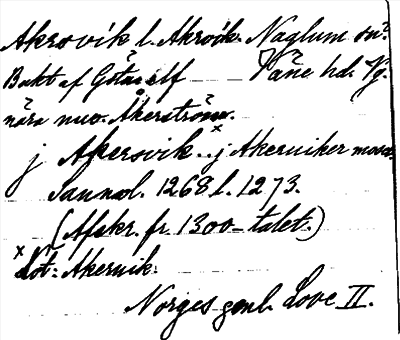 Akrsvik l. Akrvik. Naglum sn.
Bukt af Göta elf Väne hd. Vg.
nära nuv. Åkerström.
j Akersvik. x j Akeruiker mosa.
Saunal. 1268 l. 1273.
(Afskr. fr. 1300-talet.)
x Lot: Akeruik.
Norges genl. Love II.